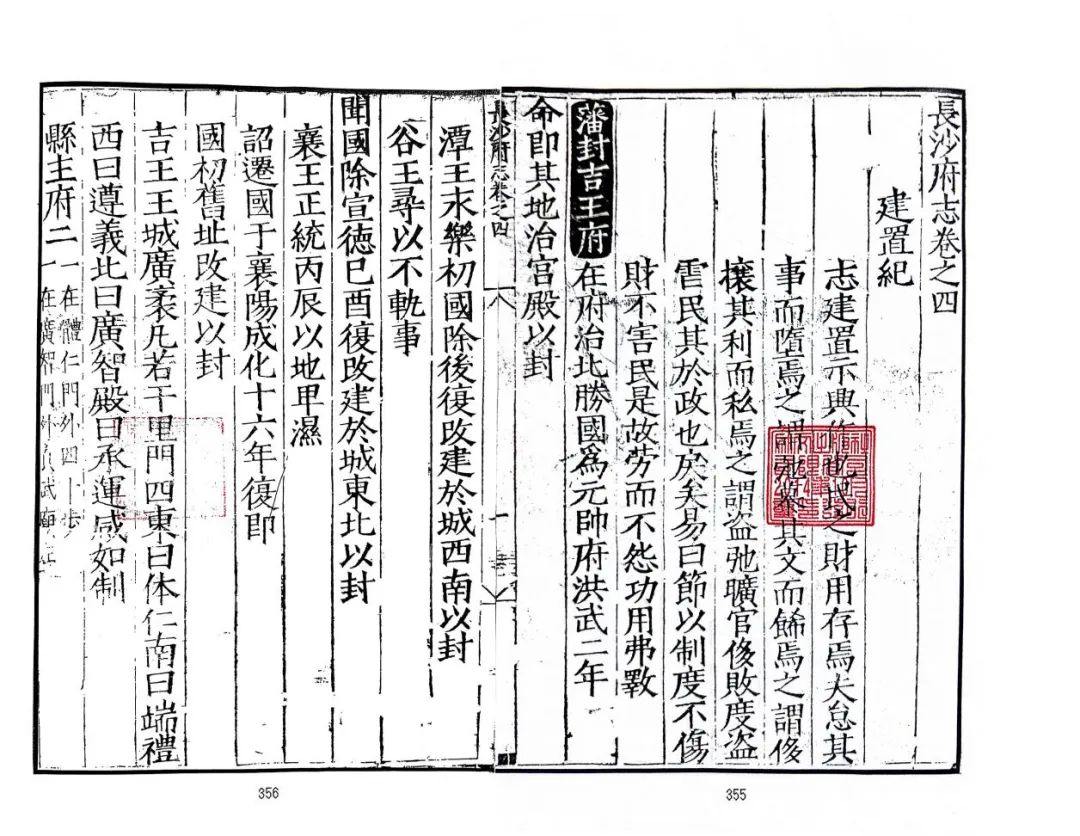 長沙府志卷之四
建置紀
志建置示典作也民之財用存焉夫怠其
事而墮焉之謂弛綦其文而餙焉之謂侈
攘其利而私焉之謂盗弛曠官侈敗度盗
虐民其於政也戾矣易曰節以制度不傷
財不害民是故劳而不怨功用弗斁
藩封吉王府在府治北勝國為元帥府洪武二年
命即其地治宫殿以封
長沙府志卷之四
潭王永樂初國除後復改建於城西南以封
谷王尋以不軌事
聞國除宣德己酉復改建於城東北以封
襄王正統丙辰以地卑濕
詔遷國于襄陽成化十六年復即
國初舊址改建以封
吉王王城廣袤凡若干里門四東曰体仁南曰端禮
西曰遵義北曰廣智殿曰承運咸如制
縣主府二一在體仁門外四
一在廣智門外
356
355